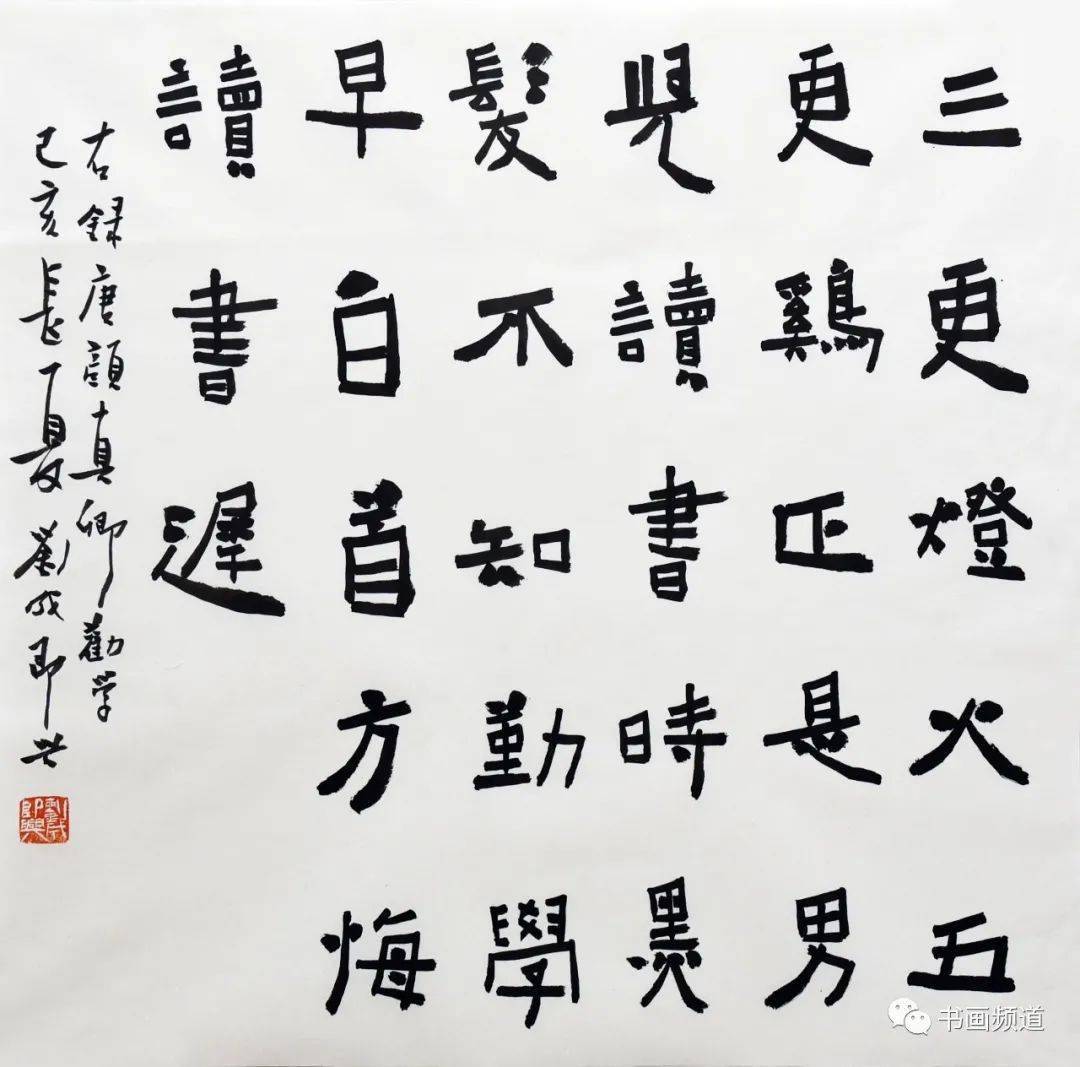 三更燈火五
更鷄正是男
兒讀書時黑
髮不知勤學
早白首方悔
讀書遲
右録唐顔真卿勸学
己亥長夏劉成即兴
书画频道